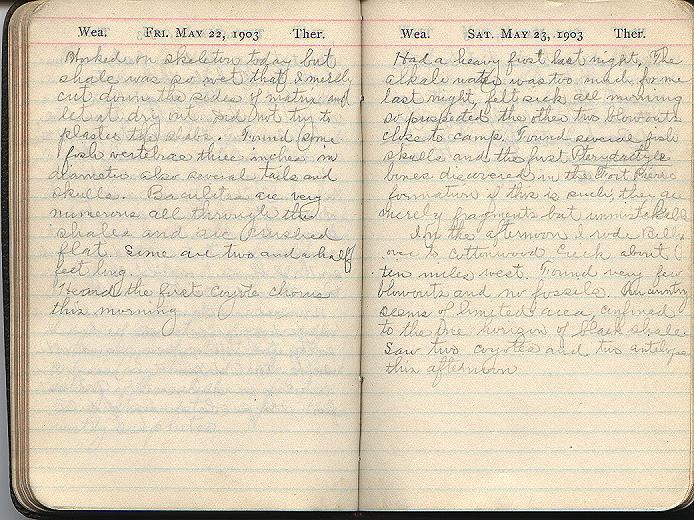 Wea. FRI. MAY 22, 1903 Ther.
Worked on skeleton today but
shale was so wet that I merely
cut down the sides of matrix and
let it dry out. Did not try to
plaster the slabs. Found some
fish vertebrae three inches in
diameter also several tails and
skulls. Baculites are very
numerous all through the
shales and are crushed
flat. Some are two and a half
feet long.
Heard the first coyote chorus
this morning
Wea. SAT. MAY 23, 1903 Ther.
Had a heavy frost last night. The
alkali water was too much for me
last night, felt sick all morning
so prospected the other two blowouts
close to camp. Found several fish
skulls and the first Pterydactyle
bones discovered in the Fort Pierre
formation if this is such, they are
merely fragments but
In the afternoon I rode Billy
over to Cottonwood Creek about
ten miles west. Found very few
blowouts and no fossils. Our country
seems of limited area, confined
to the one horizon of black shale.
Saw two coyotes and two antelopes
this afternoon